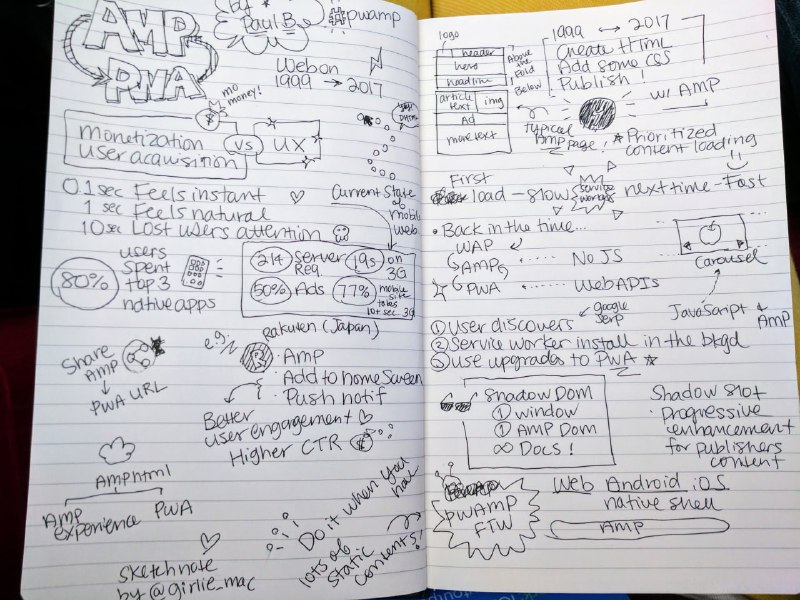 AMP
PWA
by
Paul B.
#pwamp
Web on
1999 → 2017
mo money!
Monetization
User acquisition
vs
UX
0.1 sec Feels instant
1 sec Feels natural
10 sec Lost users attention
Current State
of mobile
web
80%
users
spent
top 3
native apps
214 Server Req.
19s on 3G
50% Ads
77% mobile
site
takes
10+ sec 3G
Share
AMP
↓
PWA URL
e.g.
Rakuten (Japan)
· AMP
· Add to home Screen
· Push notif
Better
user engagement
Higher CTR
Amphtml
Amp
experience
PWA
Do it when you have
lots of
static
contents!
sketchnote
by @girlie_mac
logo
header
hero
headline
article
text
img
Ad
more text
Above
the
Fold
Below
1999 ↔ 2017
Create HTML
Add some CSS
Publish!
Typical
Amp page!
w/ AMP
* Prioritized
content loading
First
load – slow
service
worker
next time – Fast
• Back in the time...
WAP
AMP ...... No JS
PWA ...... Web APIs
Carousel
JavaScript &
AMP
① User discovers
google
serp
② Service worker install in the bkgd
③ Use upgrades to PWA
Shadow Dom
① window
① AMP Dom
∞ Docs!
Shadow slot
· Progressive
enhancement
for publishers
content
PWAMP
FTW
Web Android iOS
native shell
AMP